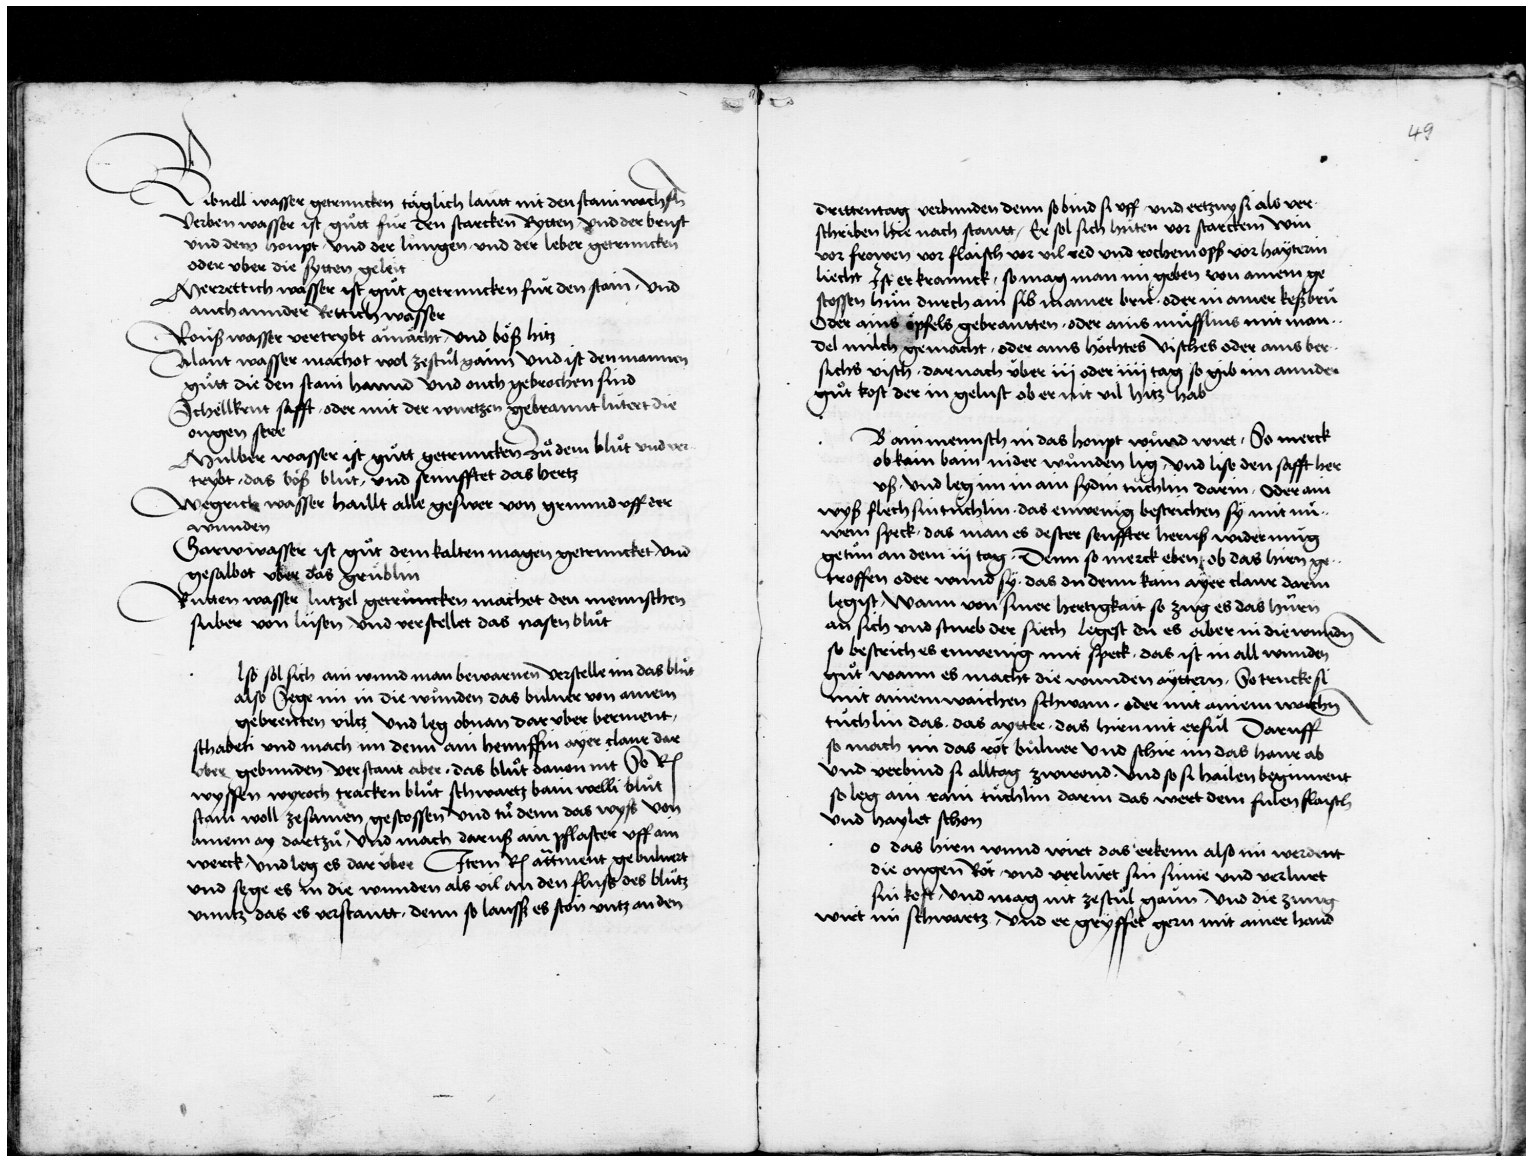 Bibnell wasser getruncken täglich lautt nit den stain wachsen
Verben wasser ist gůtt für den starcken Rytten Vnd der brust
vnd dem houpt vnd der lungen vnd der leber getruncken
oder vber die sytten geleit
Merrettich wasser ist gůt getruncken für den stain, vnd
auch annder Rettich wasser
Rouß wasser vertrybt ämächt, vnd böß hitz
Alant wasser machot wol zestůl gainn Vnd ist den mannen
gůtt die den stain hannd Vnd ouch gebrochen sind
Schellkrut safft oder mit der wurtzen gebrannt lutert die
ougen sere
Mulber wasser ist gůtt getruncken Zů dem blůt vnd ver
trybt das böß blůt, vnd sennfftet das hertz
Wegrich wasser haillt alle geswer von grunnd vff der
wunden
Garwwasser ist gůt dem kalten magen getruncket vnd
gesalbot vber das grüblin
Rutten wasser lutzel getrůncken machet den mennschen
suber von lüsen vnd verstellet das nasen blůt
lso sol sich ain wund man bewarnen verstelle im das blůt
also Sege im in die wůnden das buluer von ainem
gebrenten viltz Vnd leg obnan dar vber berment,
schaben vnd mach im denn ain hennffin ayer claur dar
vber gebunden verstaut aber das blůt dauon nit So R
wyssen wyroch tracken blůt schwartz bain welli blůt
stain woll zesamen gestossen Vnd tů denn das wyß von
ainem ay dartzů, Vnd mach daruß ain pflaster vff ain
werck, Vnd leg es dar vber Item R attment gebuluert
vnd sege es in die wunden als vil an den fluss des blůtz
vnntz das es verstautt, denn so laussß es ston vntz an den
49
dritten tag verbunden denn so bind si vff vnd ertzny si als ver
schriben hie nach stautt, Er sol sich hüten vor starckem win
vor frowen vor flaisch vor vil red vnd vor haÿterm
liecht Ist er kranнck, so mag man im geben von ainem ge
stossen hůn durch ain sib in ainer brů oder in ainer keßbrů
Oder ains öpfels gebrautten oder ains můsslins mit man
del milch gemacht oder ains höchtes visches oder ains ber
sichs visch dar nach über iij oder iiij tag so gib im annder
gůt kost der in gelust ob er nit vil hitz hab
B ain mennsch in das houpt wůnd wirt, So merck
ob kain bain nider wůnden lig, Vnd lise den safft her
vß, vnd leg im in ain sydin tüchlin darin Oder ain
wyß flechsin tuchlin das ein wenig bestrichen sy mit nü
wem speck das man es dester sennffter heruß wider mug
getůn an dem iij tag Denn so merck eben ob das hirn ge
troffen oder wund sÿ das du denn kain ayer claur darin
legist, Wann von siner hertigkait so zug es das hürn
an sich vnd sturb der siech Legest du es aber in die wunden
so bestrich es ein wenig mit speck das ist in all wunden
gůt wann es macht die wunden ayttern, So truncke si
mit ainem waichen schwam oder mit ainem waichen
tůchlin das das aytter das hirn nit erfül Daruff
so mach im das rot buluer Vnd schir im das haur ab
Vnd verbind si alltag zwirond Vnd so si hailen beginnent
so leg ain rain tüchlin darin das wert dem fulen flaisch
Vnd haylet schon
o das hirn wund wirt das erkenn also im werdent
die ougen Rot vnd verlürt sin stimme vnd verlurt
sin kost, Vnd mag nit zestůl gäun, Vnd die zung
wirt im schwartz, vnd er gryffet gern mit ainer hand